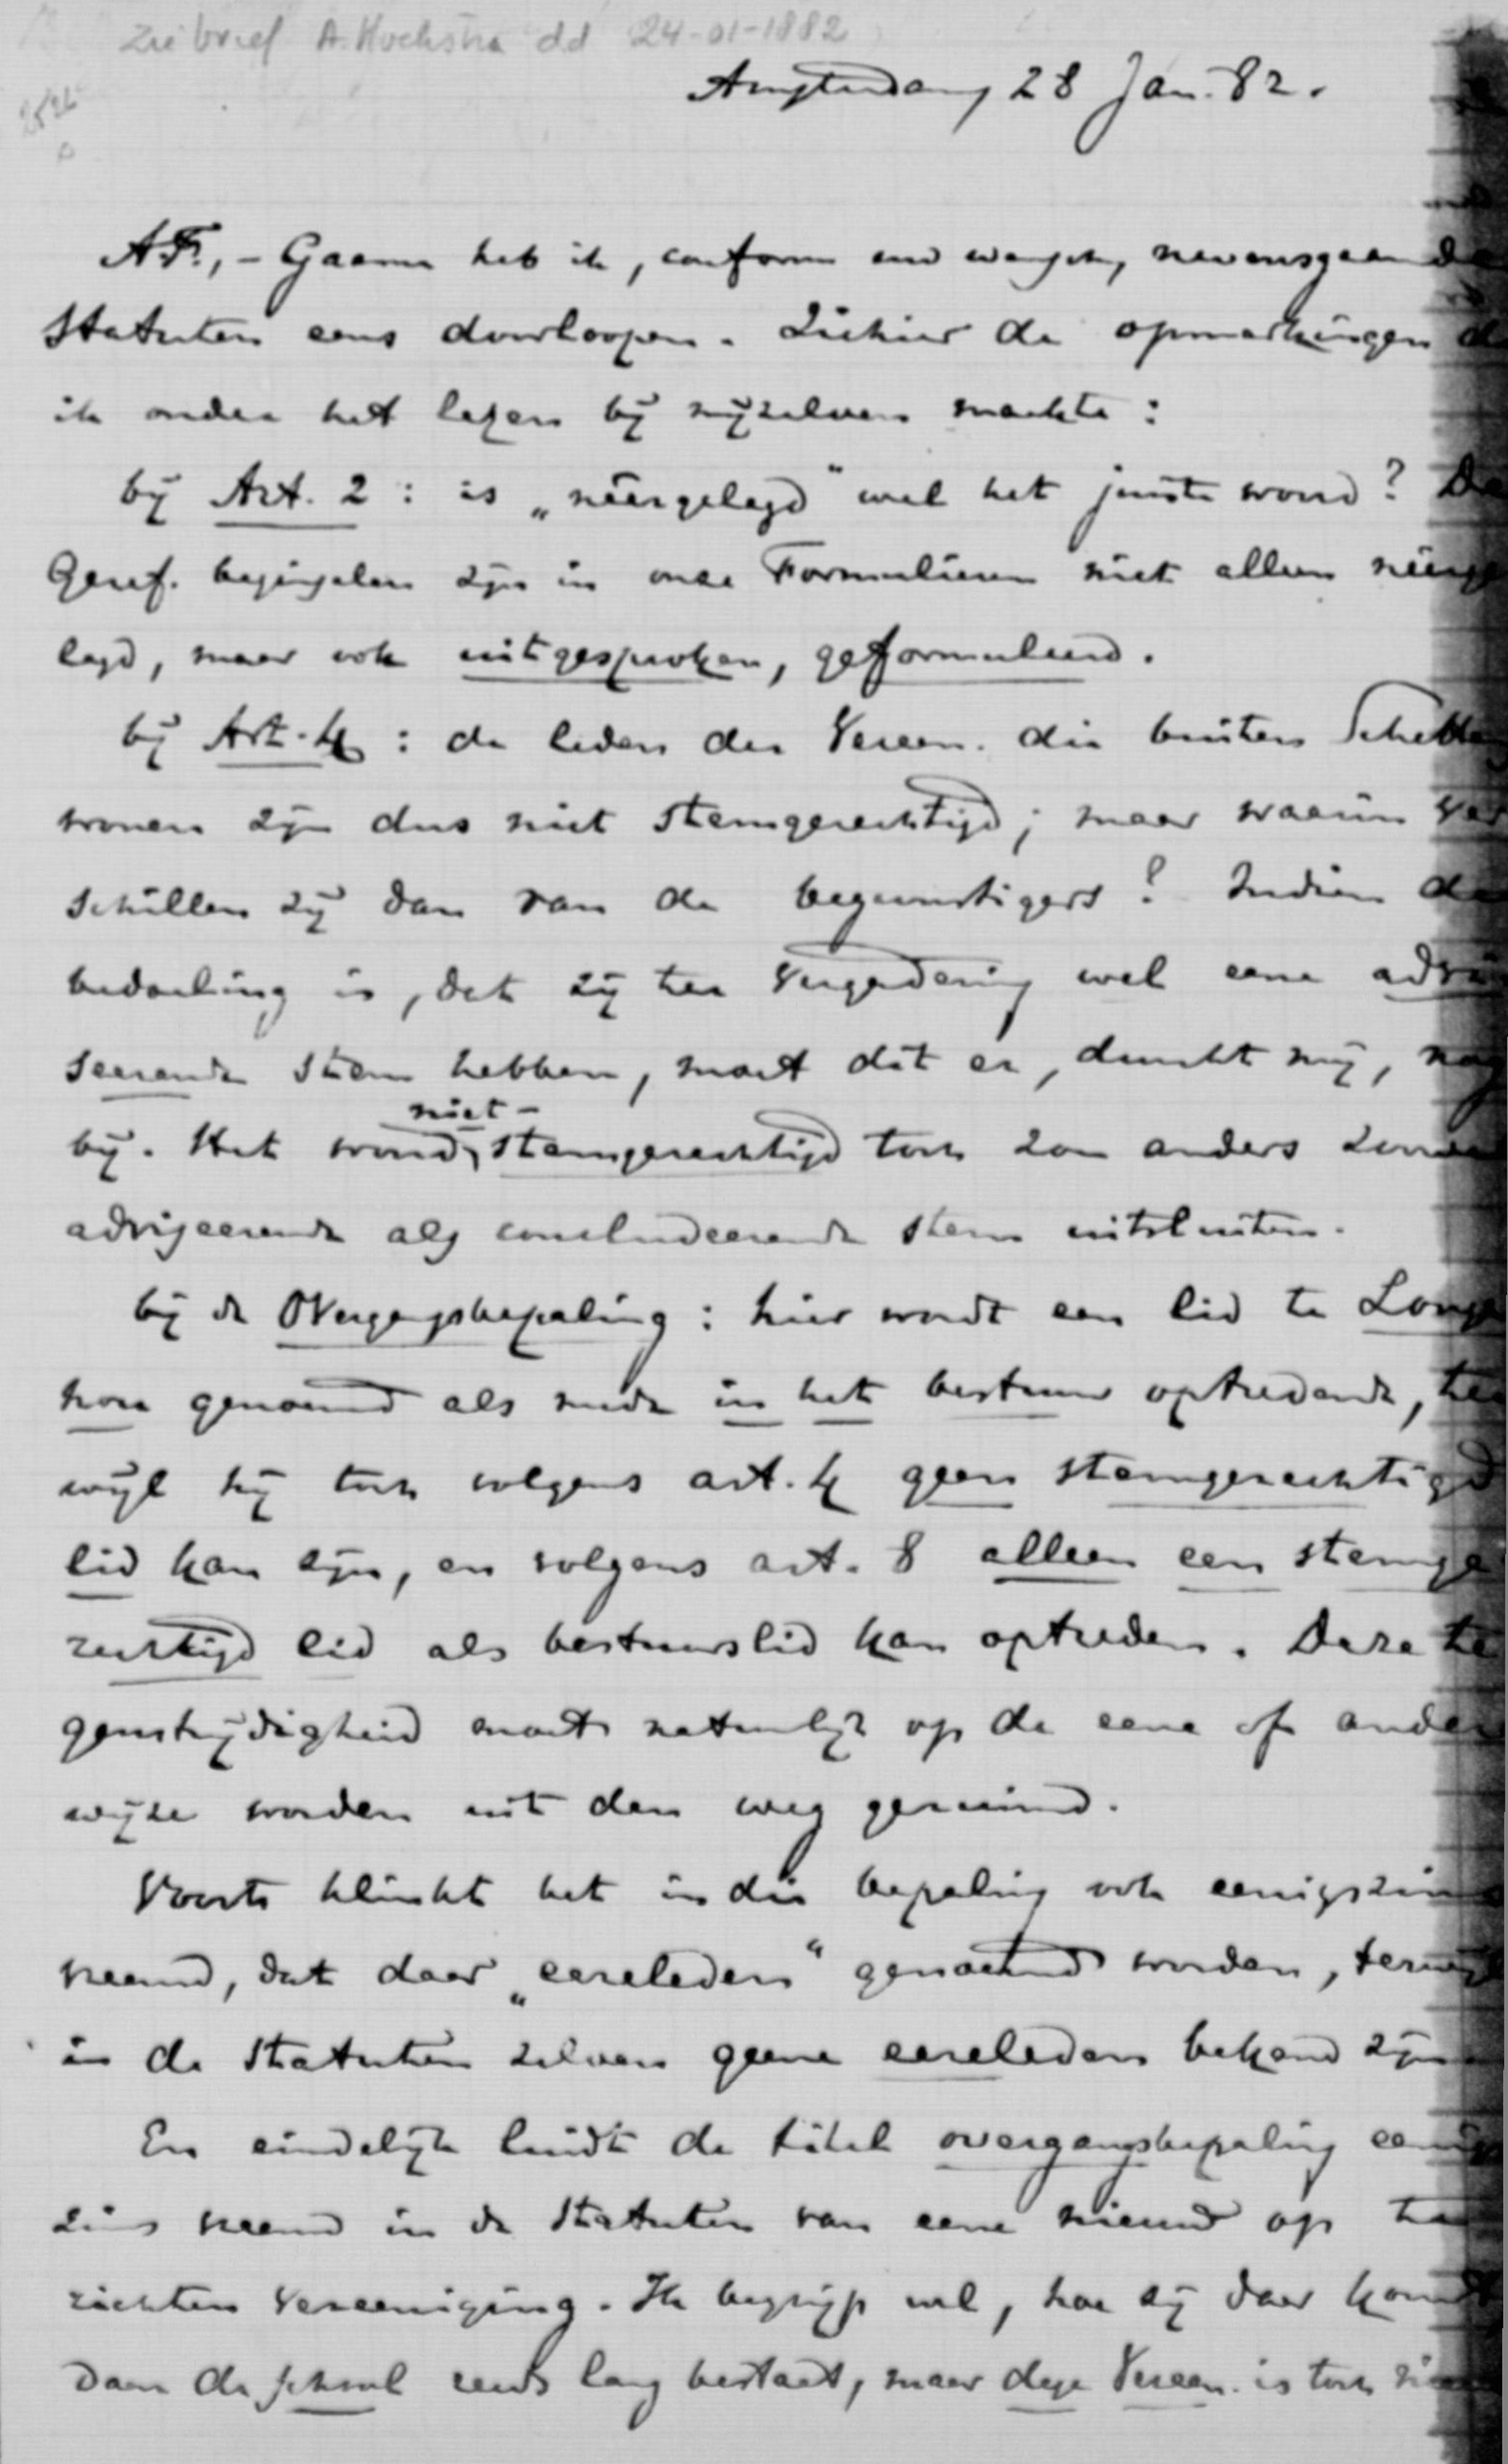 Zie brief A. Hoekstra dd 24-01-1882
Amsterdam, 28 Jan. 82.
A.F., - Gaarne heb ik, conform uw wensch, nevensgaande
Statuten eens doorloopen. Ziehier de opmerkingen
ik onder het lezen bij mijzelven maakte:
bij Art. 2: is „neergelegd" wel het juiste woord? De
Geref. beginselen zijn in onze Formulieren niet alleen neerge
legd, maar ook uitgesproken, geformuleerd.
bij Art. 4: de leden der Vereen. die buiten
wonen zijn dus niet stemgerechtigd; maar waarin ver
schillen zij dan van de begunstigers? Indien de
bedoeling is, dat zij ter Vergadering wel eene advi
seerende stem hebben, moet dit er, dunkt mij, nog
bij. Het woord niet-stemgerechtigd toch zou anders zoowel
adviseerende als concludeerende stem uitsluiten.
bij de Overgangsbepaling: hier wordt een lid te
genoemd als mede in het bestuur optredende, ter
wijl hij toch volgens art. 4 geen stemgerechtigd
lid kan zijn, en volgens art. 8 alleen een stemge
rechtigd lid als bestuurslid kan optreden. Deze te
genstrijdigheid moet natuurlijk op de eene of andere
wijze worden uit den weg geruimd.
Voorts klinkt het in die bepaling ook eenigszins
vreemd, dat daar „eereleden" genoemd worden, terwijl
in de Statuten zelven geene eereleden bekend zijn.
En eindelijk luidt de titel overgangsbepaling eenigs
zins vreemd in de Statuten van eene nieuw op te
richten Vereeniging. Ik begrijp wel, hoe zij daar komt,
daar de school reeds lang bestaat, maar deze Vereen. is toch